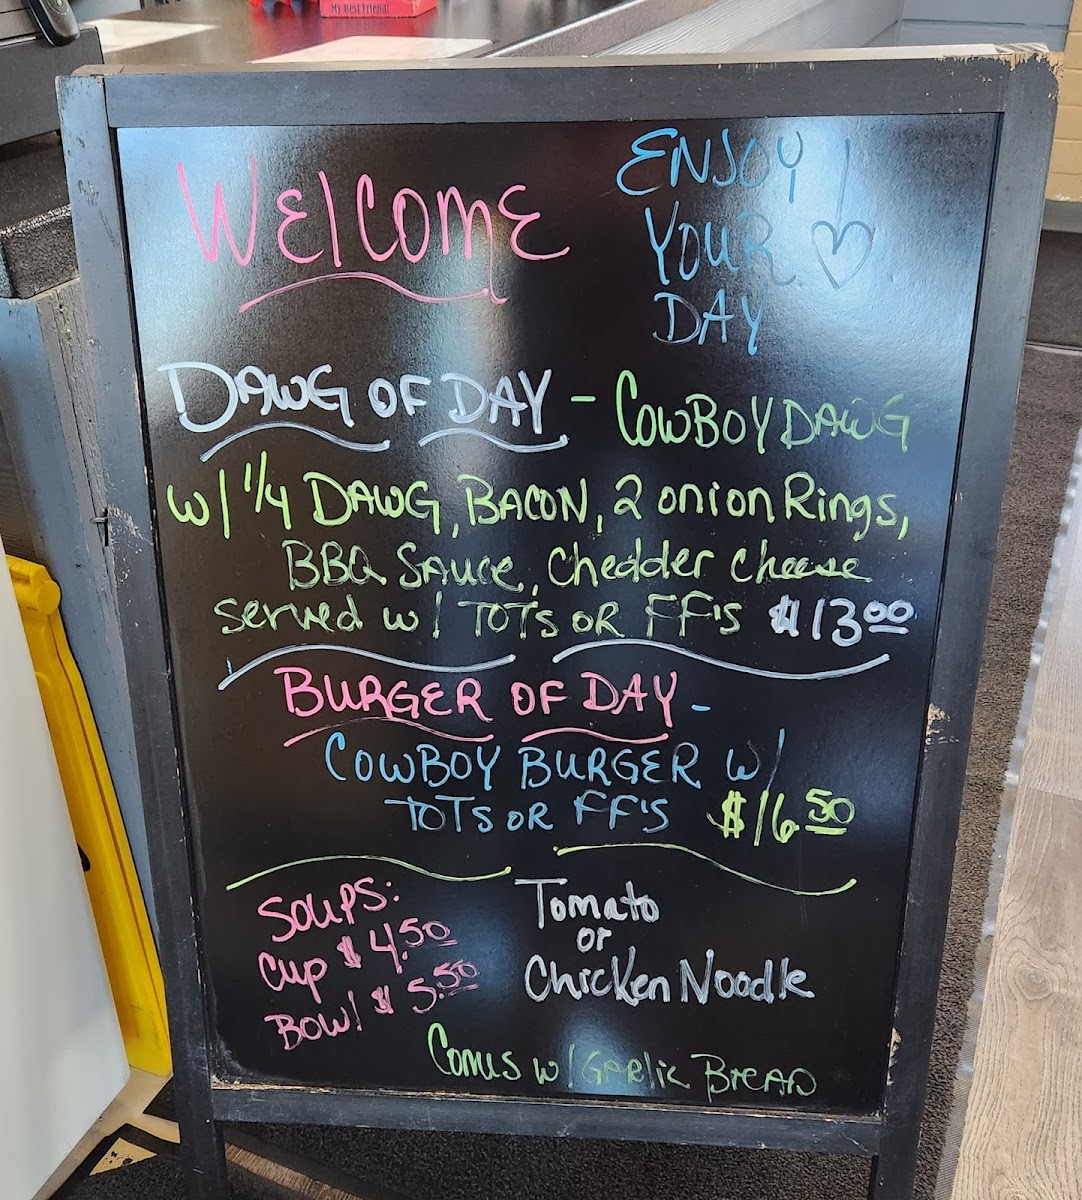 My Best Friend!
Welcome
ENJOY
YOUR
DAY
DAWG OF DAY - COWBOY DAWG
W/ 1/4 DAWG, BACON, 2 onion Rings,
BBQ Sauce, Chedder cheese
served w/ TOTS OR FF'S $13.00
BURGER OF DAY -
COWBOY BURGER W/
TOTS OR FF'S $16.50
SOUPS:
CUP $4.50
BOWl $5.50
Tomato
or
Chicken Noodle
Comes w/ Garlic Bread